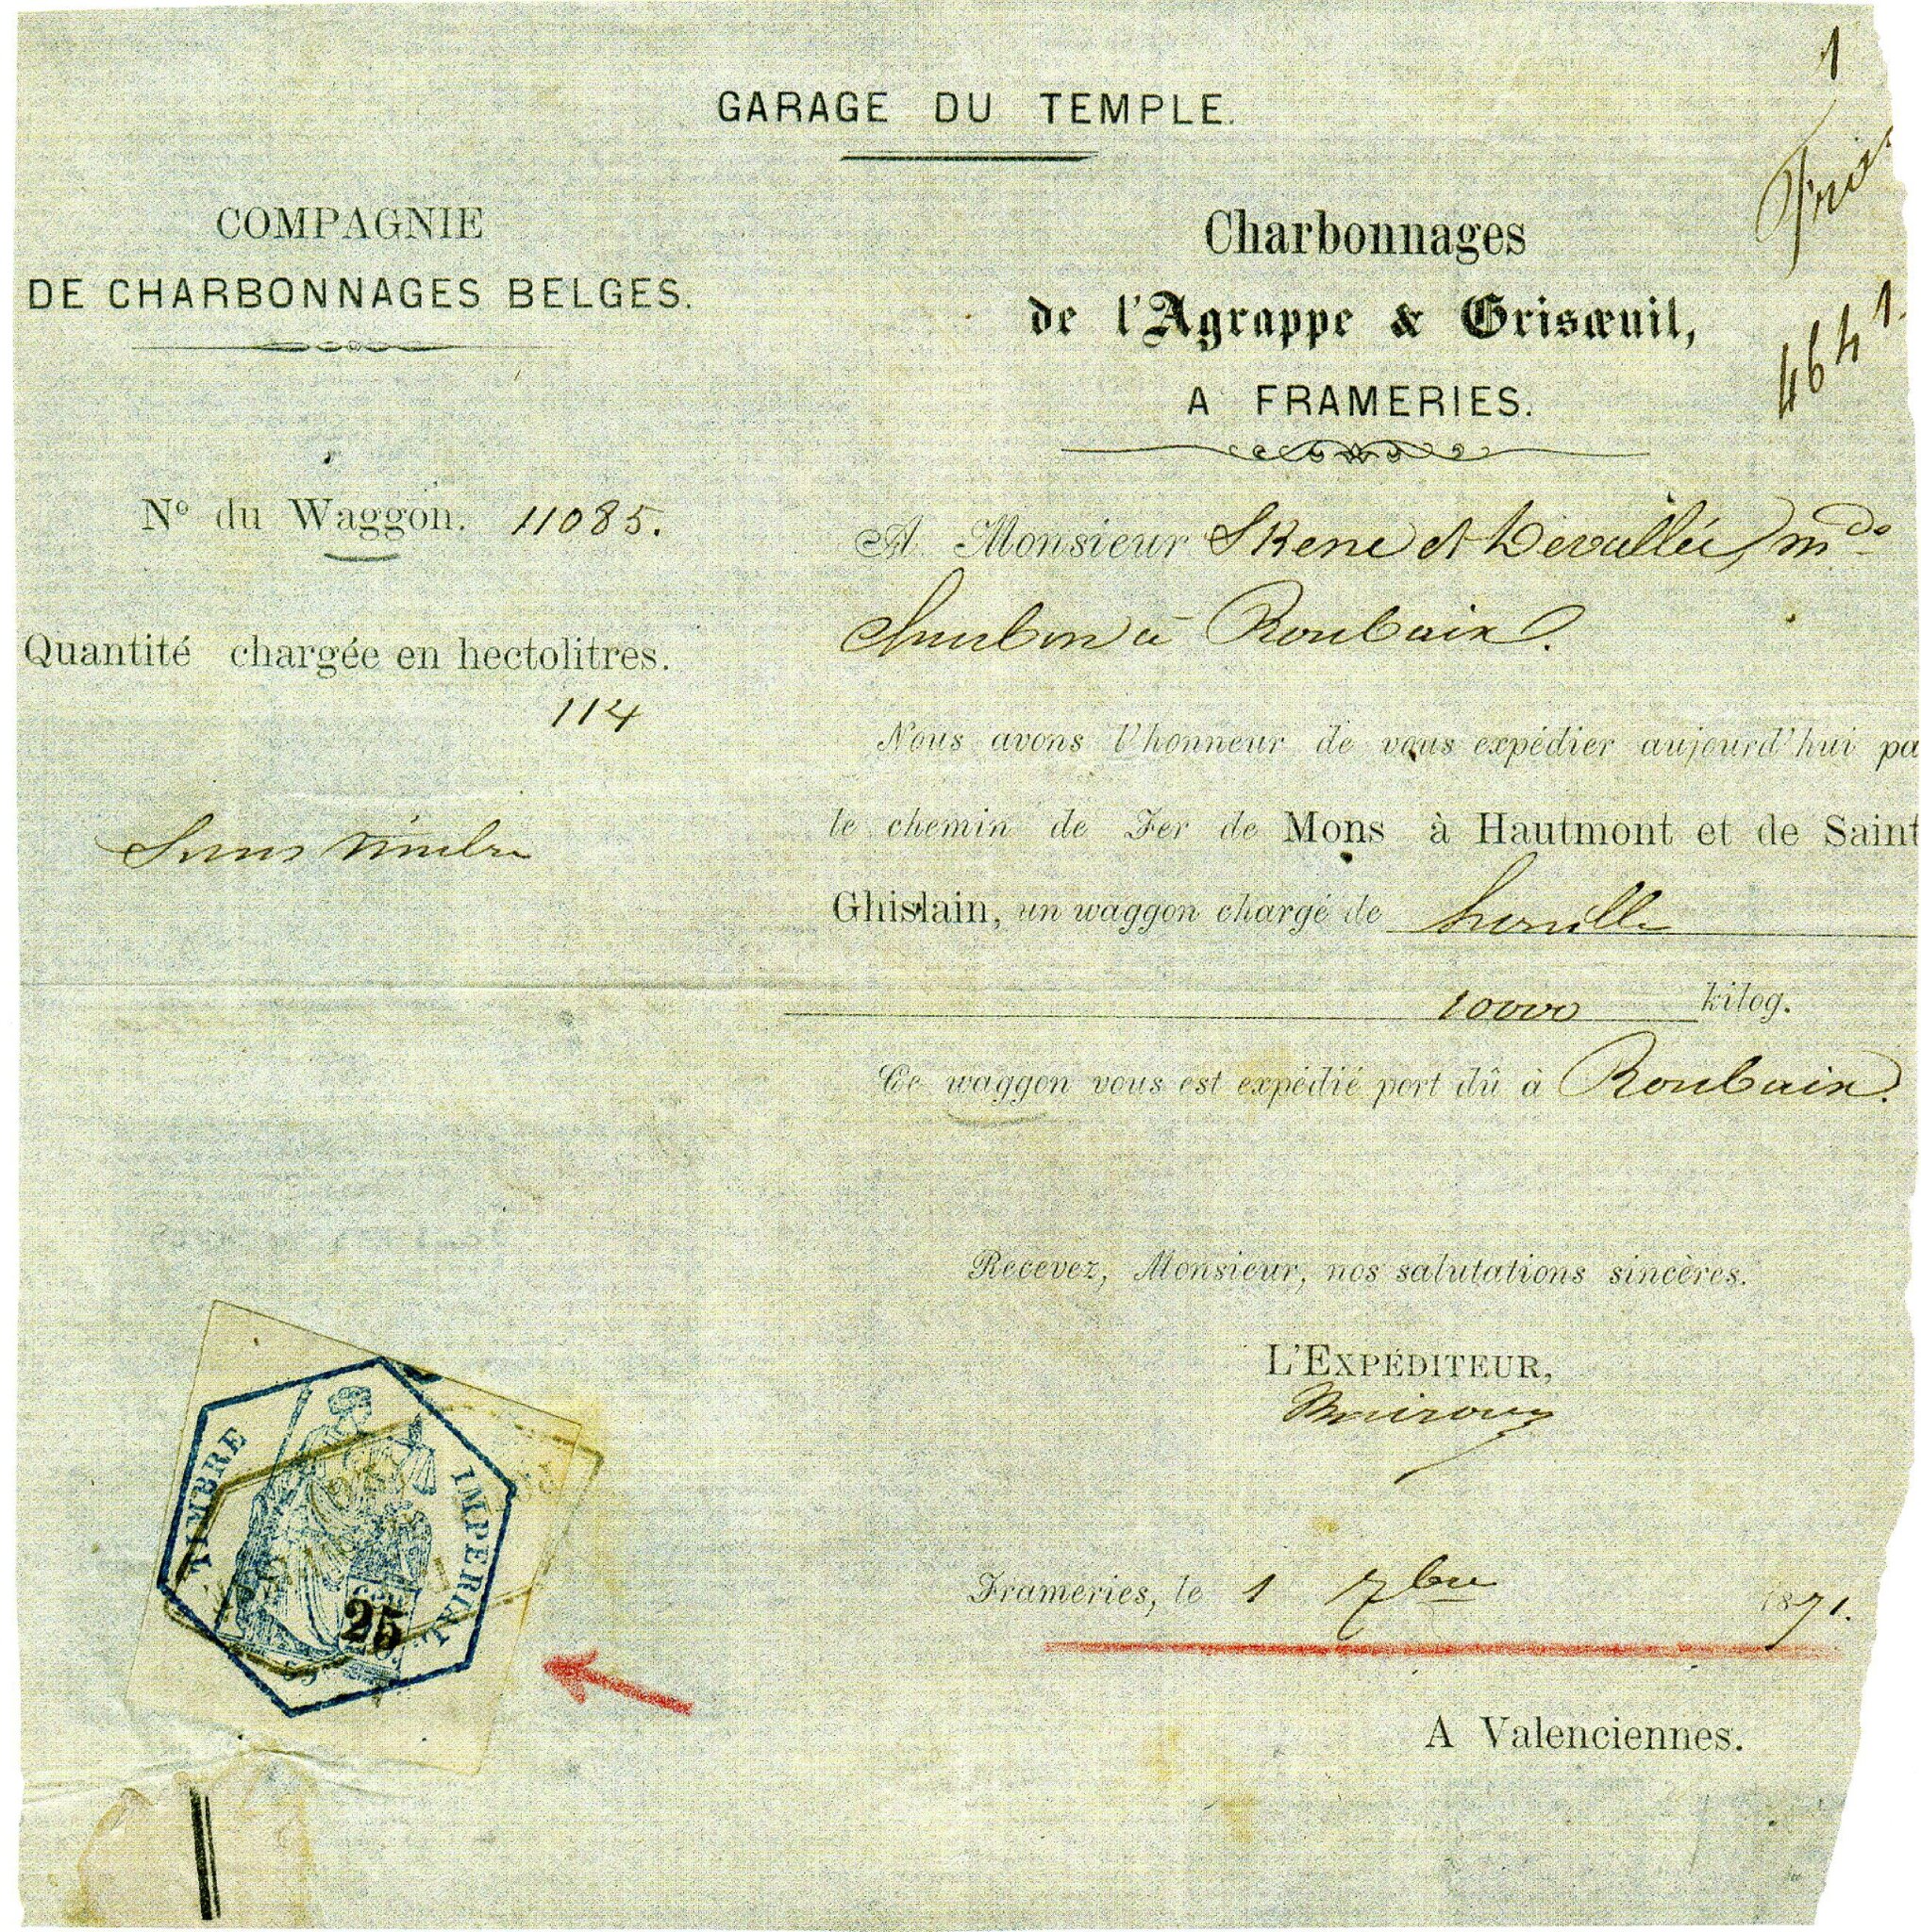 GARAGE DU TEMPLE.
COMPAGNIE
DE CHARBONNAGES BELGES.
Nº du Waggon. 11085.
Quantité chargée en hectolitres.
114
Sans timbre
1
4641
Charbonnages
de l'Agrappe & Grisœuil,
A FRAMERIES.
A Monsieur Skene et Devallée, mds
charbon à Roubaix.
Nous avons l'honneur de vous expédier aujourd'hui pa
le chemin de Fer de Mons à Hautmont et de Saint
Ghislain, un waggon chargé de houille
10000 kilog.
Ce waggon vous est expédié port dû à Roubaix.
Recevez, Monsieur, nos salutations sincères.
L'EXPÉDITEUR,
Frameries, le 1 7bre 1871.
A Valenciennes.
TIMBRE IMPERIAL
25 C.